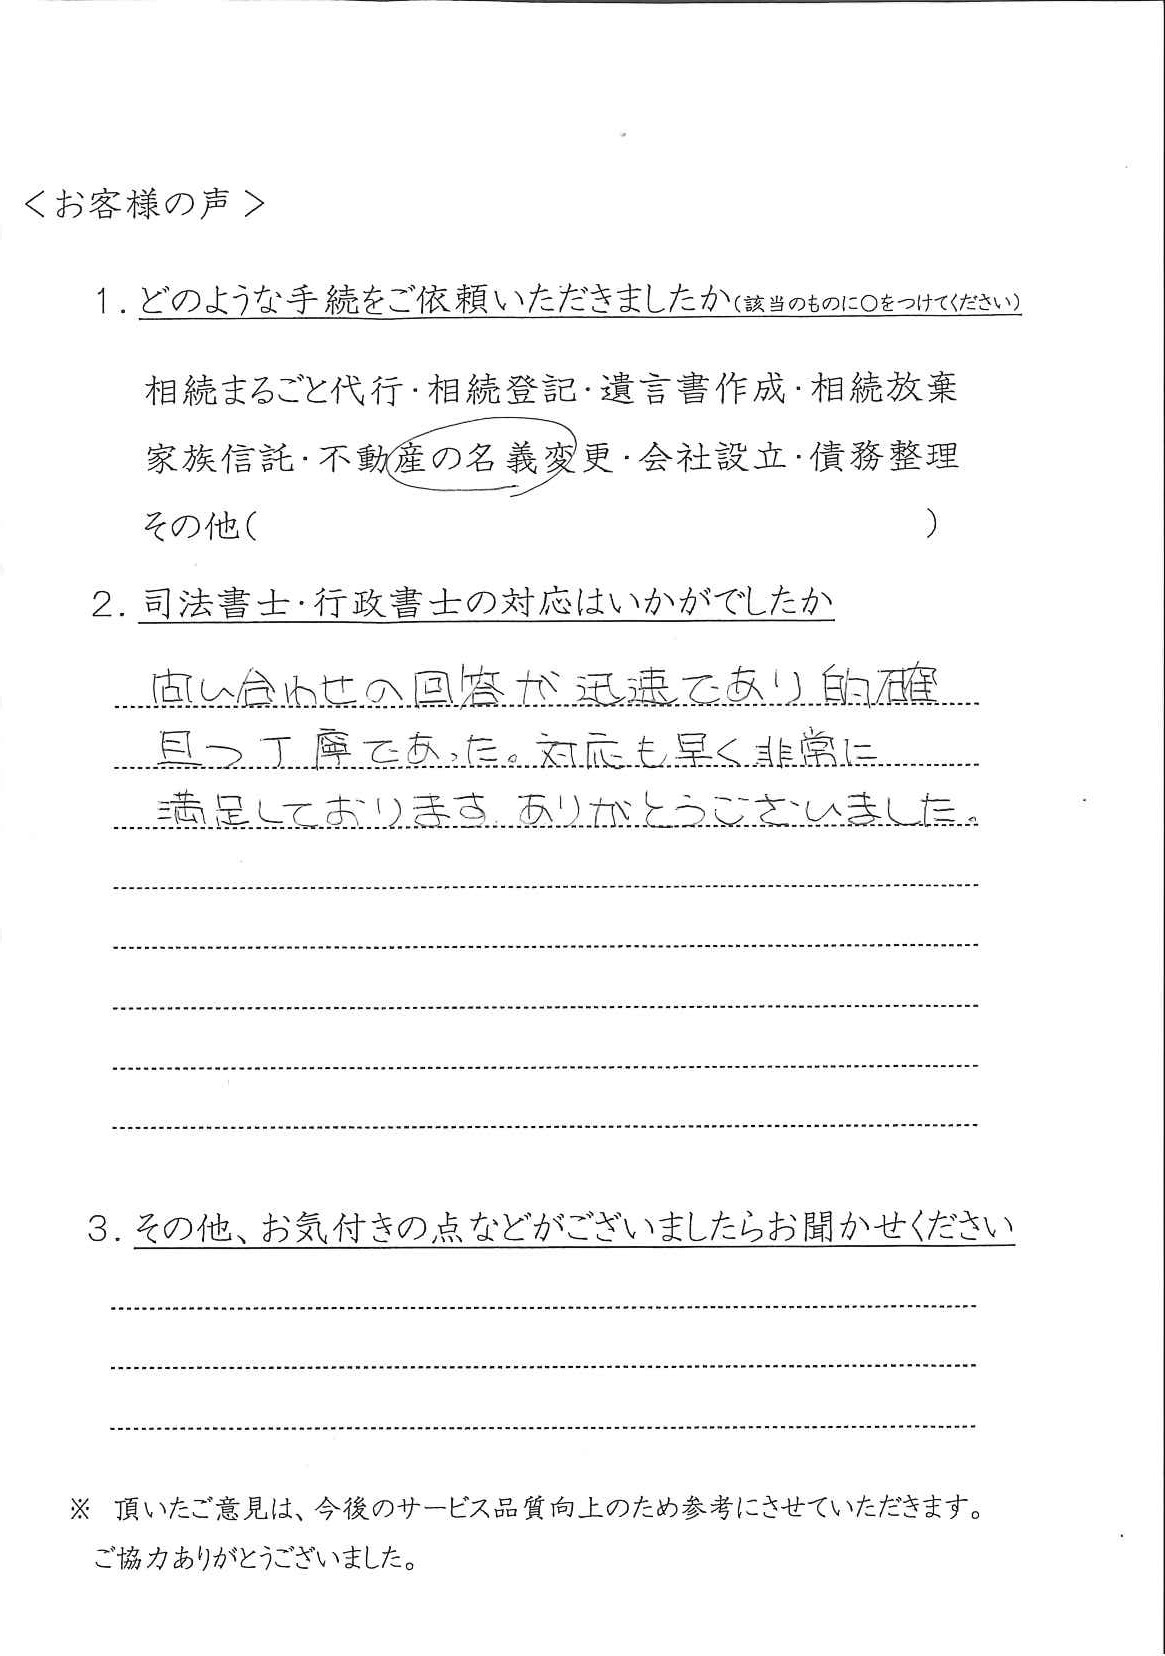 ＜お客様の声＞
1. どのような手続をご依頼いただきましたか(該当のものに〇をつけてください)
相続まるごと代行・相続登記・遺言書作成・相続放棄
家族信託・不動産の名義変更・会社設立・債務整理
その他(　　　　　　　　　　　　　　　　　　)
2. 司法書士・行政書士の対応はいかがでしたか
問い合わせの回答が迅速であり的確
且つ丁寧であった。対応も早く非常に
満足しております。ありがとうございました。
3. その他、お気付きの点などがございましたらお聞かせください
※　頂いたご意見は、今後のサービス品質向上のため参考にさせていただきます。
ご協力ありがとうございました。